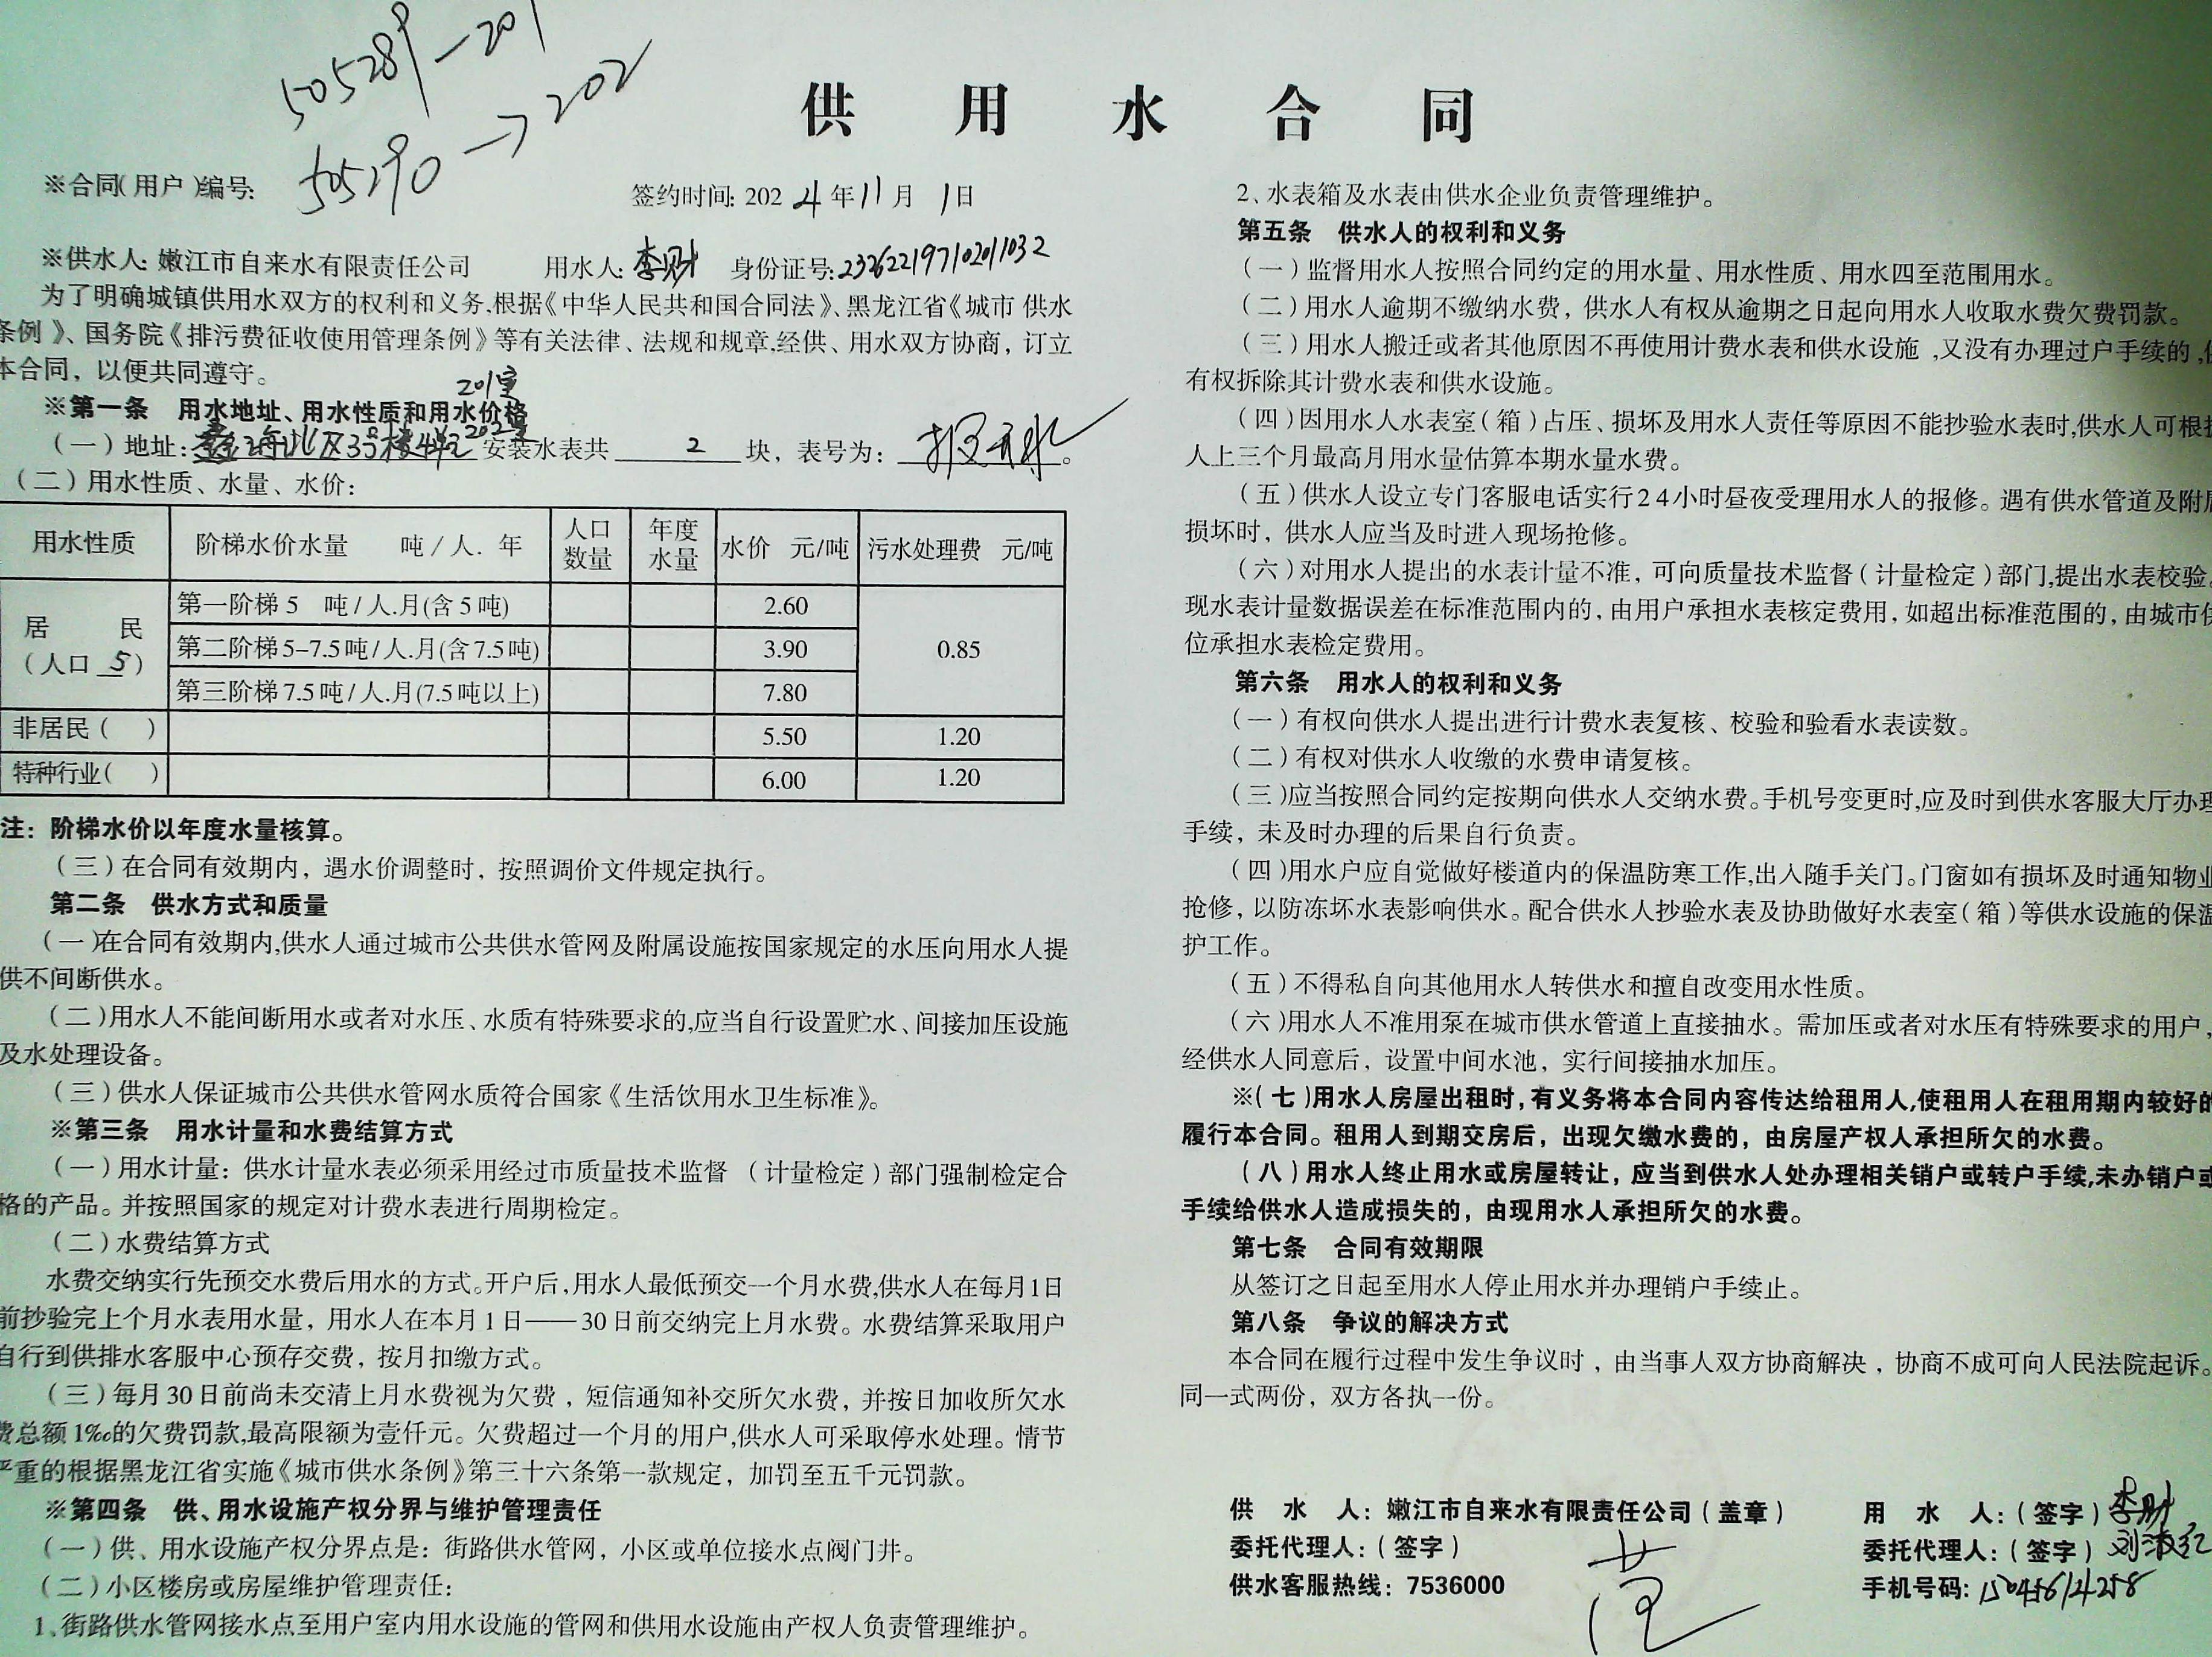 505289-201
505290→202
供用水合同
※合同(用户)编号:
签约时间: 2024年11月1日
※供水人: 嫩江市自来水有限责任公司 用水人: 李财 身份证号: 232622197102011032
为了明确城镇供用水双方的权利和义务,根据《中华人民共和国合同法》、黑龙江省《城市 供水
条例》、国务院《排污费征收使用管理条例》等有关法律、法规和规章,经供、用水双方协商，订立
本合同，以便共同遵守。
201室
※第一条 用水地址、用水性质和用水价格
202室
(一)地址: 鑫海北区3号楼4单元 安装水表共 2 块，表号为:
(二)用水性质、水量、水价:
用水性质 阶梯水价水量 吨/人. 年 人口数量 年度水量 水价 元/吨 污水处理费 元/吨
居民 (人口 5) 第一阶梯 5 吨/人.月(含 5 吨) 2.60 0.85
第二阶梯 5-7.5 吨/人.月(含 7.5 吨) 3.90
第三阶梯 7.5 吨/人.月(7.5 吨以上) 7.80
非居民( ) 5.50 1.20
特种行业( ) 6.00 1.20
注: 阶梯水价以年度水量核算。
(三)在合同有效期内，遇水价调整时，按照调价文件规定执行。
第二条 供水方式和质量
(一)在合同有效期内,供水人通过城市公共供水管网及附属设施按国家规定的水压向用水人提
供不间断供水。
(二)用水人不能间断用水或者对水压、水质有特殊要求的,应当自行设置贮水、间接加压设施
及水处理设备。
(三)供水人保证城市公共供水管网水质符合国家《生活饮用水卫生标准》。
※第三条 用水计量和水费结算方式
(一)用水计量: 供水计量水表必须采用经过市质量技术监督 (计量检定)部门强制检定合
格的产品。并按照国家的规定对计费水表进行周期检定。
(二)水费结算方式
水费交纳实行先预交水费后用水的方式。开户后,用水人最低预交一个月水费,供水人在每月1日
前抄验完上个月水表用水量，用水人在本月 1 日——30 日前交纳完上月水费。水费结算采取用户
自行到供排水客服中心预存交费，按月扣缴方式。
(三)每月 30 日前尚未交清上月水费视为欠费，短信通知补交所欠水费，并按日加收所欠水
费总额 1‰的欠费罚款,最高限额为壹仟元。欠费超过一个月的用户,供水人可采取停水处理。情节
严重的根据黑龙江省实施《城市供水条例》第三十六条第一款规定，加罚至五千元罚款。
※第四条 供、用水设施产权分界与维护管理责任
(一)供、用水设施产权分界点是: 街路供水管网，小区或单位接水点阀门井。
(二)小区楼房或房屋维护管理责任:
1、街路供水管网接水点至用户室内用水设施的管网和供用水设施由产权人负责管理维护。
2、水表箱及水表由供水企业负责管理维护。
第五条 供水人的权利和义务
(一)监督用水人按照合同约定的用水量、用水性质、用水四至范围用水。
(二)用水人逾期不缴纳水费，供水人有权从逾期之日起向用水人收取水费欠费罚款。
(三)用水人搬迁或者其他原因不再使用计费水表和供水设施,又没有办理过户手续的,供
有权拆除其计费水表和供水设施。
(四)因用水人水表室(箱)占压、损坏及用水人责任等原因不能抄验水表时,供水人可根据
人上三个月最高月用水量估算本期水量水费。
(五)供水人设立专门客服电话实行24小时昼夜受理用水人的报修。遇有供水管道及附属
损坏时，供水人应当及时进入现场抢修。
(六)对用水人提出的水表计量不准，可向质量技术监督(计量检定)部门,提出水表校验。
现水表计量数据误差在标准范围内的，由用户承担水表核定费用，如超出标准范围的，由城市供
位承担水表检定费用。
第六条 用水人的权利和义务
(一)有权向供水人提出进行计费水表复核、校验和验看水表读数。
(二)有权对供水人收缴的水费申请复核。
(三)应当按照合同约定按期向供水人交纳水费。手机号变更时,应及时到供水客服大厅办理
手续，未及时办理的后果自行负责。
(四)用水户应自觉做好楼道内的保温防寒工作,出入随手关门。门窗如有损坏及时通知物业
抢修，以防冻坏水表影响供水。配合供水人抄验水表及协助做好水表室(箱)等供水设施的保温
护工作。
(五)不得私自向其他用水人转供水和擅自改变用水性质。
(六)用水人不准用泵在城市供水管道上直接抽水。需加压或者对水压有特殊要求的用户，
经供水人同意后，设置中间水池，实行间接抽水加压。
※(七)用水人房屋出租时,有义务将本合同内容传达给租用人,使租用人在租用期内较好的
履行本合同。租用人到期交房后，出现欠缴水费的，由房屋产权人承担所欠的水费。
(八)用水人终止用水或房屋转让，应当到供水人处办理相关销户或转户手续,未办销户或
手续给供水人造成损失的，由现用水人承担所欠的水费。
第七条 合同有效期限
从签订之日起至用水人停止用水并办理销户手续止。
第八条 争议的解决方式
本合同在履行过程中发生争议时，由当事人双方协商解决，协商不成可向人民法院起诉。
同一式两份，双方各执一份。
供水人: 嫩江市自来水有限责任公司(盖章) 用水人:(签字) 李财
委托代理人:(签字) 委托代理人:(签字)
供水客服热线: 7536000 手机号码: 15045614258